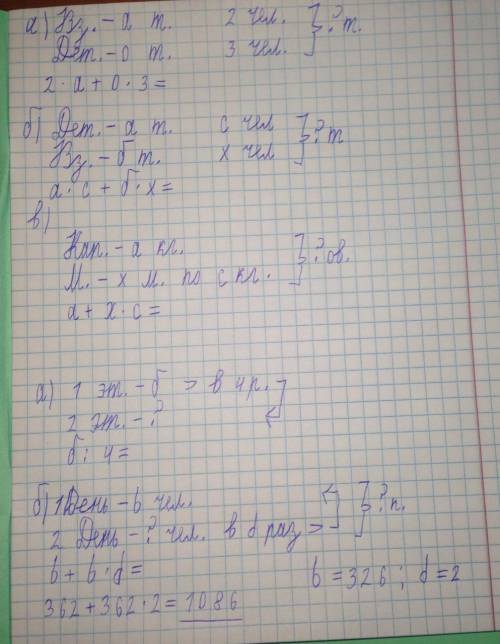 а) Вз. - а т. 2 чел. } ? т.
Дет. - о т. 3 чел.
2 · а + о · 3 =
б) Дет. - а т. с чел } ? т
Вз. - б т. х чел
а · с + б · х =
в)
Кап. - а кг. } ? ов.
М. - х м. по с кг.
а + х · с =
а) 1 эт. - б > в 4 р.
2 эт. - ?
б : 4 =
б) 1 День - b чел. } ? п.
2 День - ? чел. в d раз >
b + b · d = b = 326 ; d = 2
362 + 362 · 2 = 1086